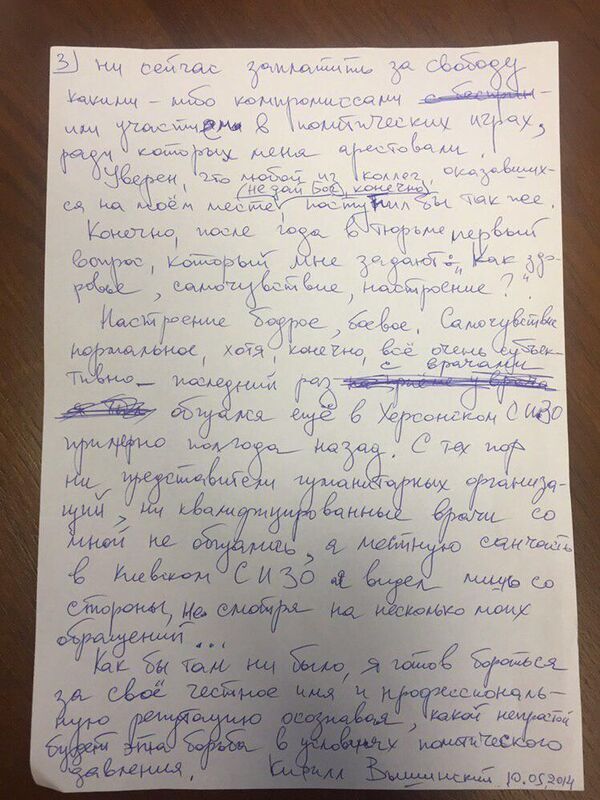 3) ни сейчас заплатить за свободу
какими-либо компромиссами
или участием в политических играх,
ради которых меня арестовали.
Уверен, что любой из коллег, оказавших-
(не дай бог, конечно)
ся на моём месте, поступил бы так же.
Конечно, после года в тюрьме первый
вопрос, который мне задают: „Как здо-
ровье, самочувствие, настроение?"
Настроение бодрое, боевое. Самочувствие
нормальное, хотя, конечно, всё очень субъек-
тивно – последний раз с врачами
общался ещё в Херсонском СИЗО
примерно полгода назад. С тех пор
ни представители гуманитарных организа-
ций, ни квалифицированные врачи со
мной не общались, а местную санчасть
в Киевском СИЗО я видел лишь со
стороны, не смотря на несколько моих
обращений...
Как бы там ни было, я готов бороться
за своё честное имя и профессиональ-
ную репутацию осознавая, какой непростой
будет эта борьба в условиях политического
давления. Кирилл Вышинский 10.05.2019